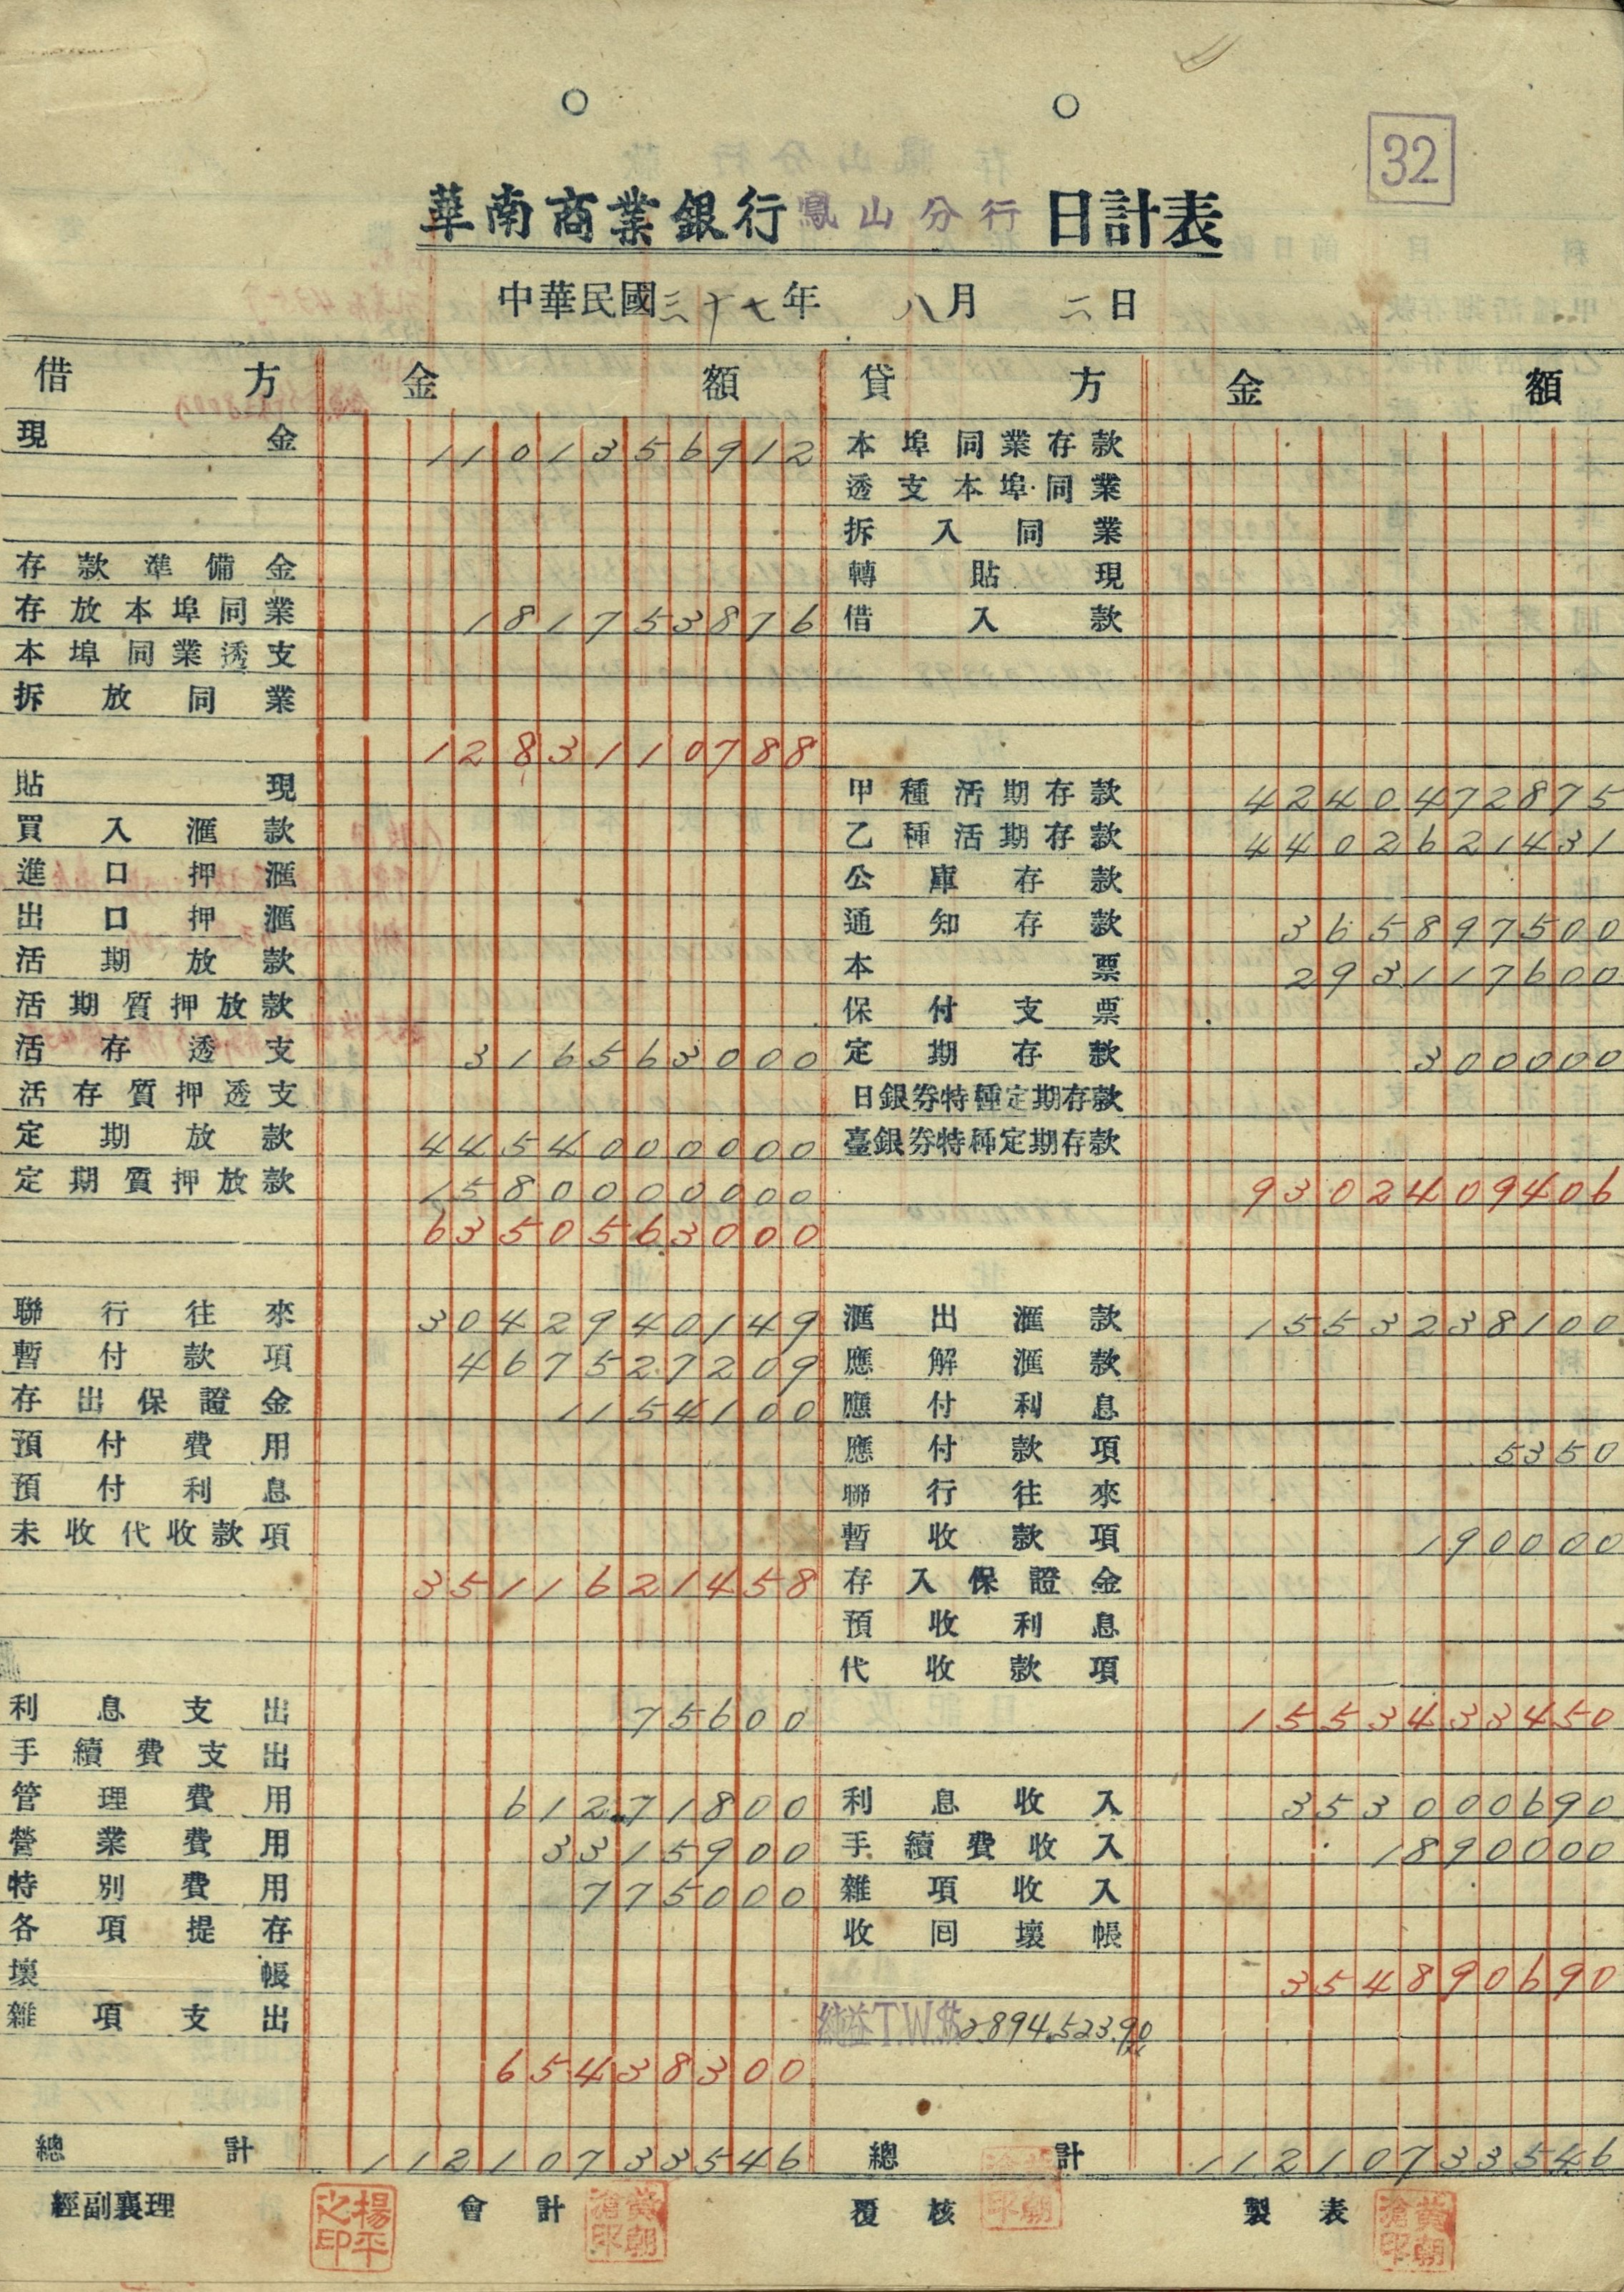 32
華南商業銀行鳳山分行日計表
中華民國三十七年 八月 二日
借方 金額 貸方 金額
現金 1101356912 本埠同業存款
透支本埠同業
拆入同業
存款準備金 轉貼現
存放本埠同業 181753876 借入款
本埠同業透支
拆放同業
1283110788
貼現 甲種活期存款 4240472875
買入滙款 乙種活期存款 4402621431
進口押滙 公庫存款
出口押滙 通知存款 365897500
活期放款 本票 293117600
活期質押放款 保付支票
活存透支 316563000 定期存款 300000
活存質押透支 日銀券特種定期存款
定期放款 4454000000 臺銀券特種定期存款
定期質押放款 1580000000 9302409406
6350563000
聯行往來 3042940149 滙出滙款 1553238100
暫付款項 467527209 應解滙款
存出保證金 1154100 應付利息
預付費用 應付款項 5350
預付利息 聯行往來
未收代收款項 暫收款項 190000
3511621458 存入保證金
預收利息
代收款項
利息支出 75600 1553433450
手續費支出
管理費用 61271800 利息收入 353000690
營業費用 3315900 手續費收入 1890000
特別費用 775000 雜項收入
各項提存 收回壞帳
壞帳 354890690
雜項支出 純益T.W.$2,894,523.90
65438300
總計 11210733546 總計 11210733546
經副襄理 楊平之印 會計 黃朝滄印 覆核 黃朝滄印 製表 黃朝滄印